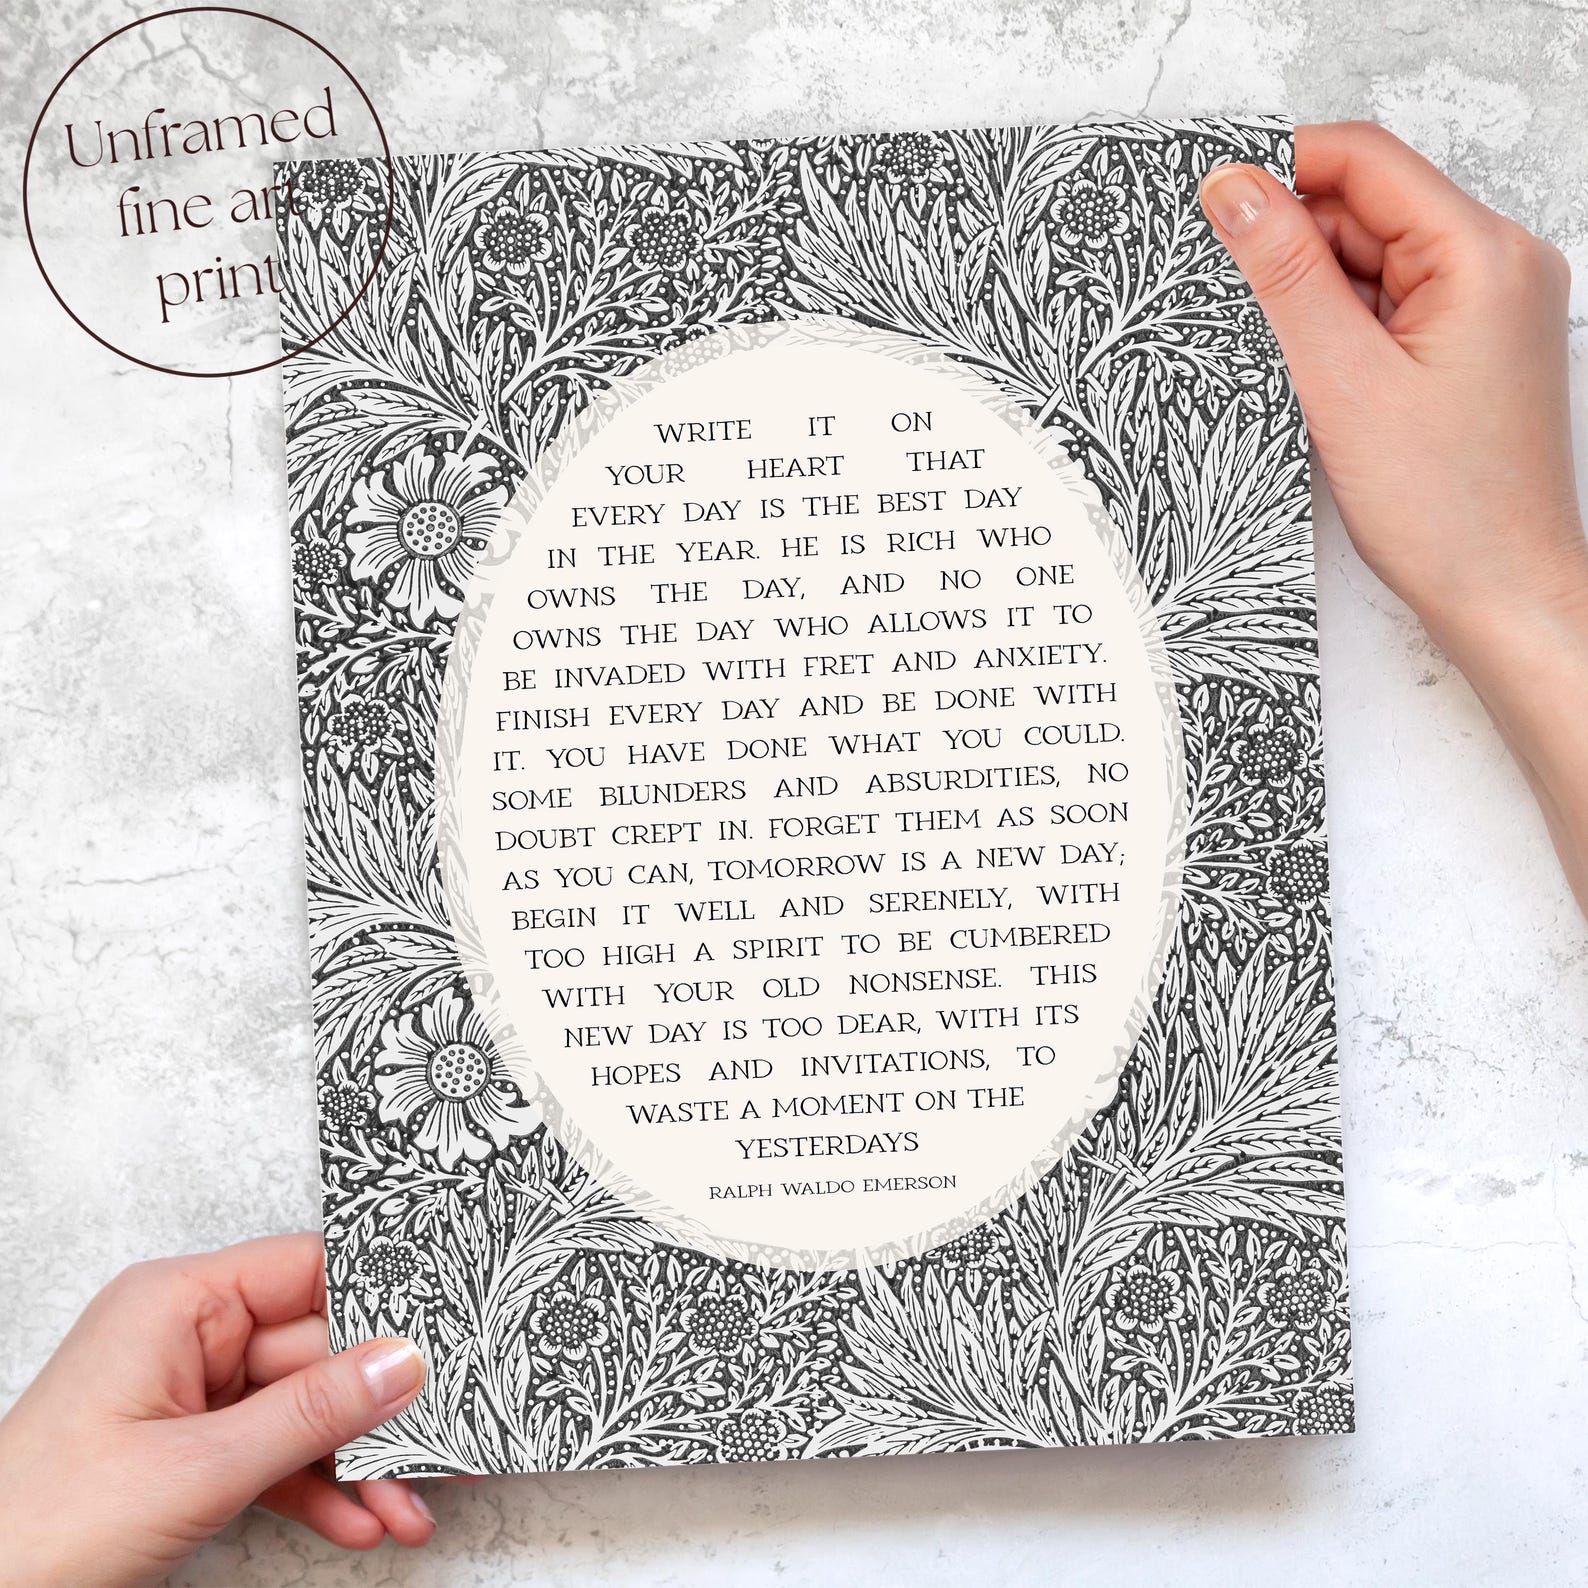 Unframed
fine art
print
WRITE IT ON
YOUR HEART THAT
EVERY DAY IS THE BEST DAY
IN THE YEAR. HE IS RICH WHO
OWNS THE DAY, AND NO ONE
OWNS THE DAY WHO ALLOWS IT TO
BE INVADED WITH FRET AND ANXIETY.
FINISH EVERY DAY AND BE DONE WITH
IT. YOU HAVE DONE WHAT YOU COULD.
SOME BLUNDERS AND ABSURDITIES, NO
DOUBT CREPT IN. FORGET THEM AS SOON
AS YOU CAN, TOMORROW IS A NEW DAY;
BEGIN IT WELL AND SERENELY, WITH
TOO HIGH A SPIRIT TO BE CUMBERED
WITH YOUR OLD NONSENSE. THIS
NEW DAY IS TOO DEAR, WITH ITS
HOPES AND INVITATIONS, TO
WASTE A MOMENT ON THE
YESTERDAYS
RALPH WALDO EMERSON